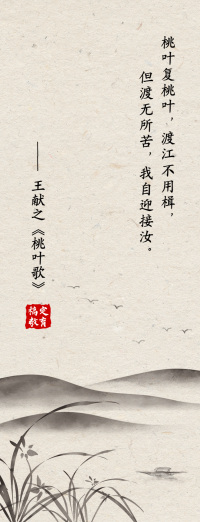 桃叶复桃叶，渡江不用楫，
但渡无所苦，我自迎接汝。
——王献之《桃叶歌》